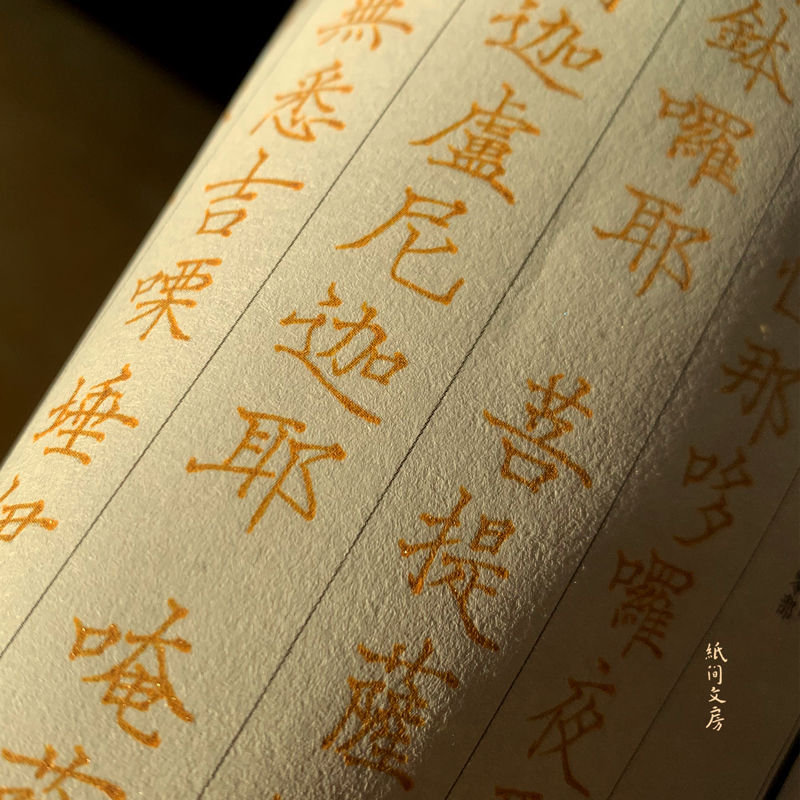 那哆囉夜
鉢囉耶 菩提薩
迦盧尼迦耶 唵
無悉吉㗚埵伊
紙间文房